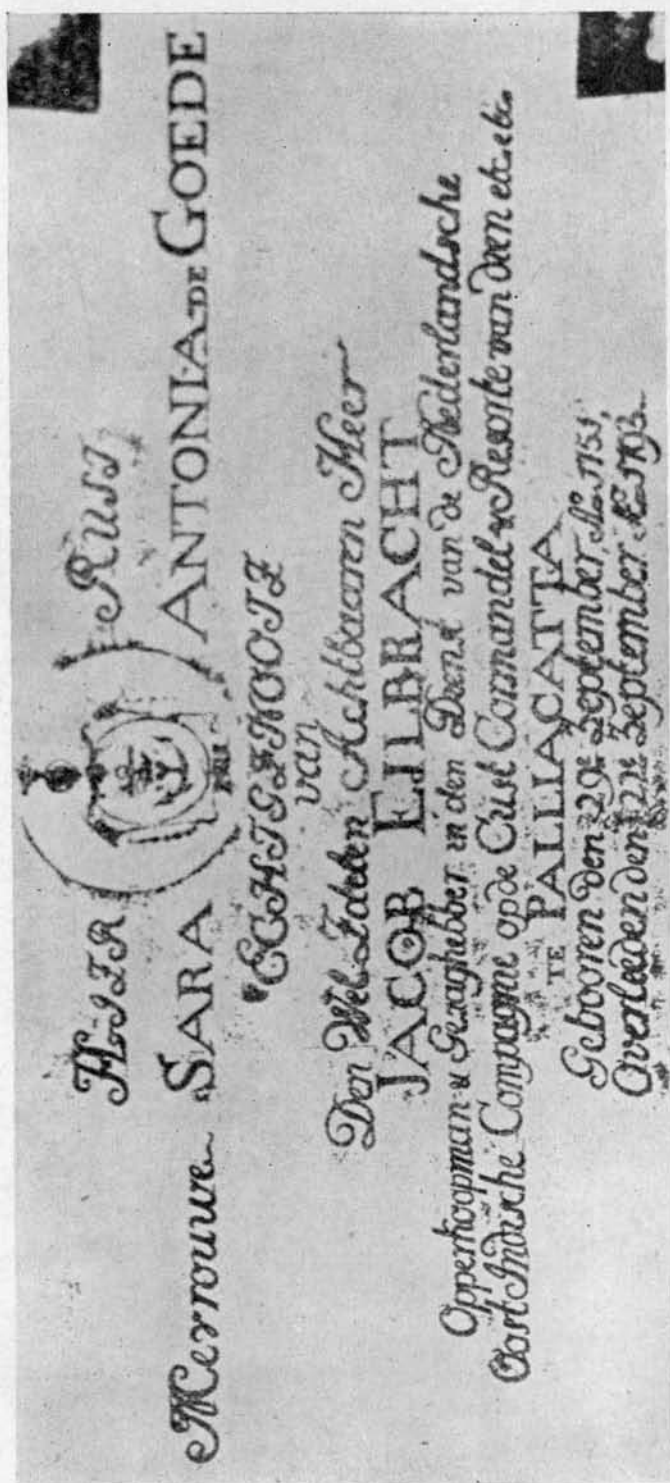 HIER RUST
Mevrouwe SARA ANTONIA DE GOEDE
ECHTGENOOTE
van
Den Wel Edelen Achtbaaren Heer
JACOB EILBRACHT
Opperkoopman & Gezaghebber in den Dienst van de Nederlandsche
Oost Indische Compagnie op de Cust Cormandel & Resorte van dien etc. etc.
TE PALLIACATTA
Gebooren den 29e September Ao 1751,
Overleeden den 12e September Ao 1793